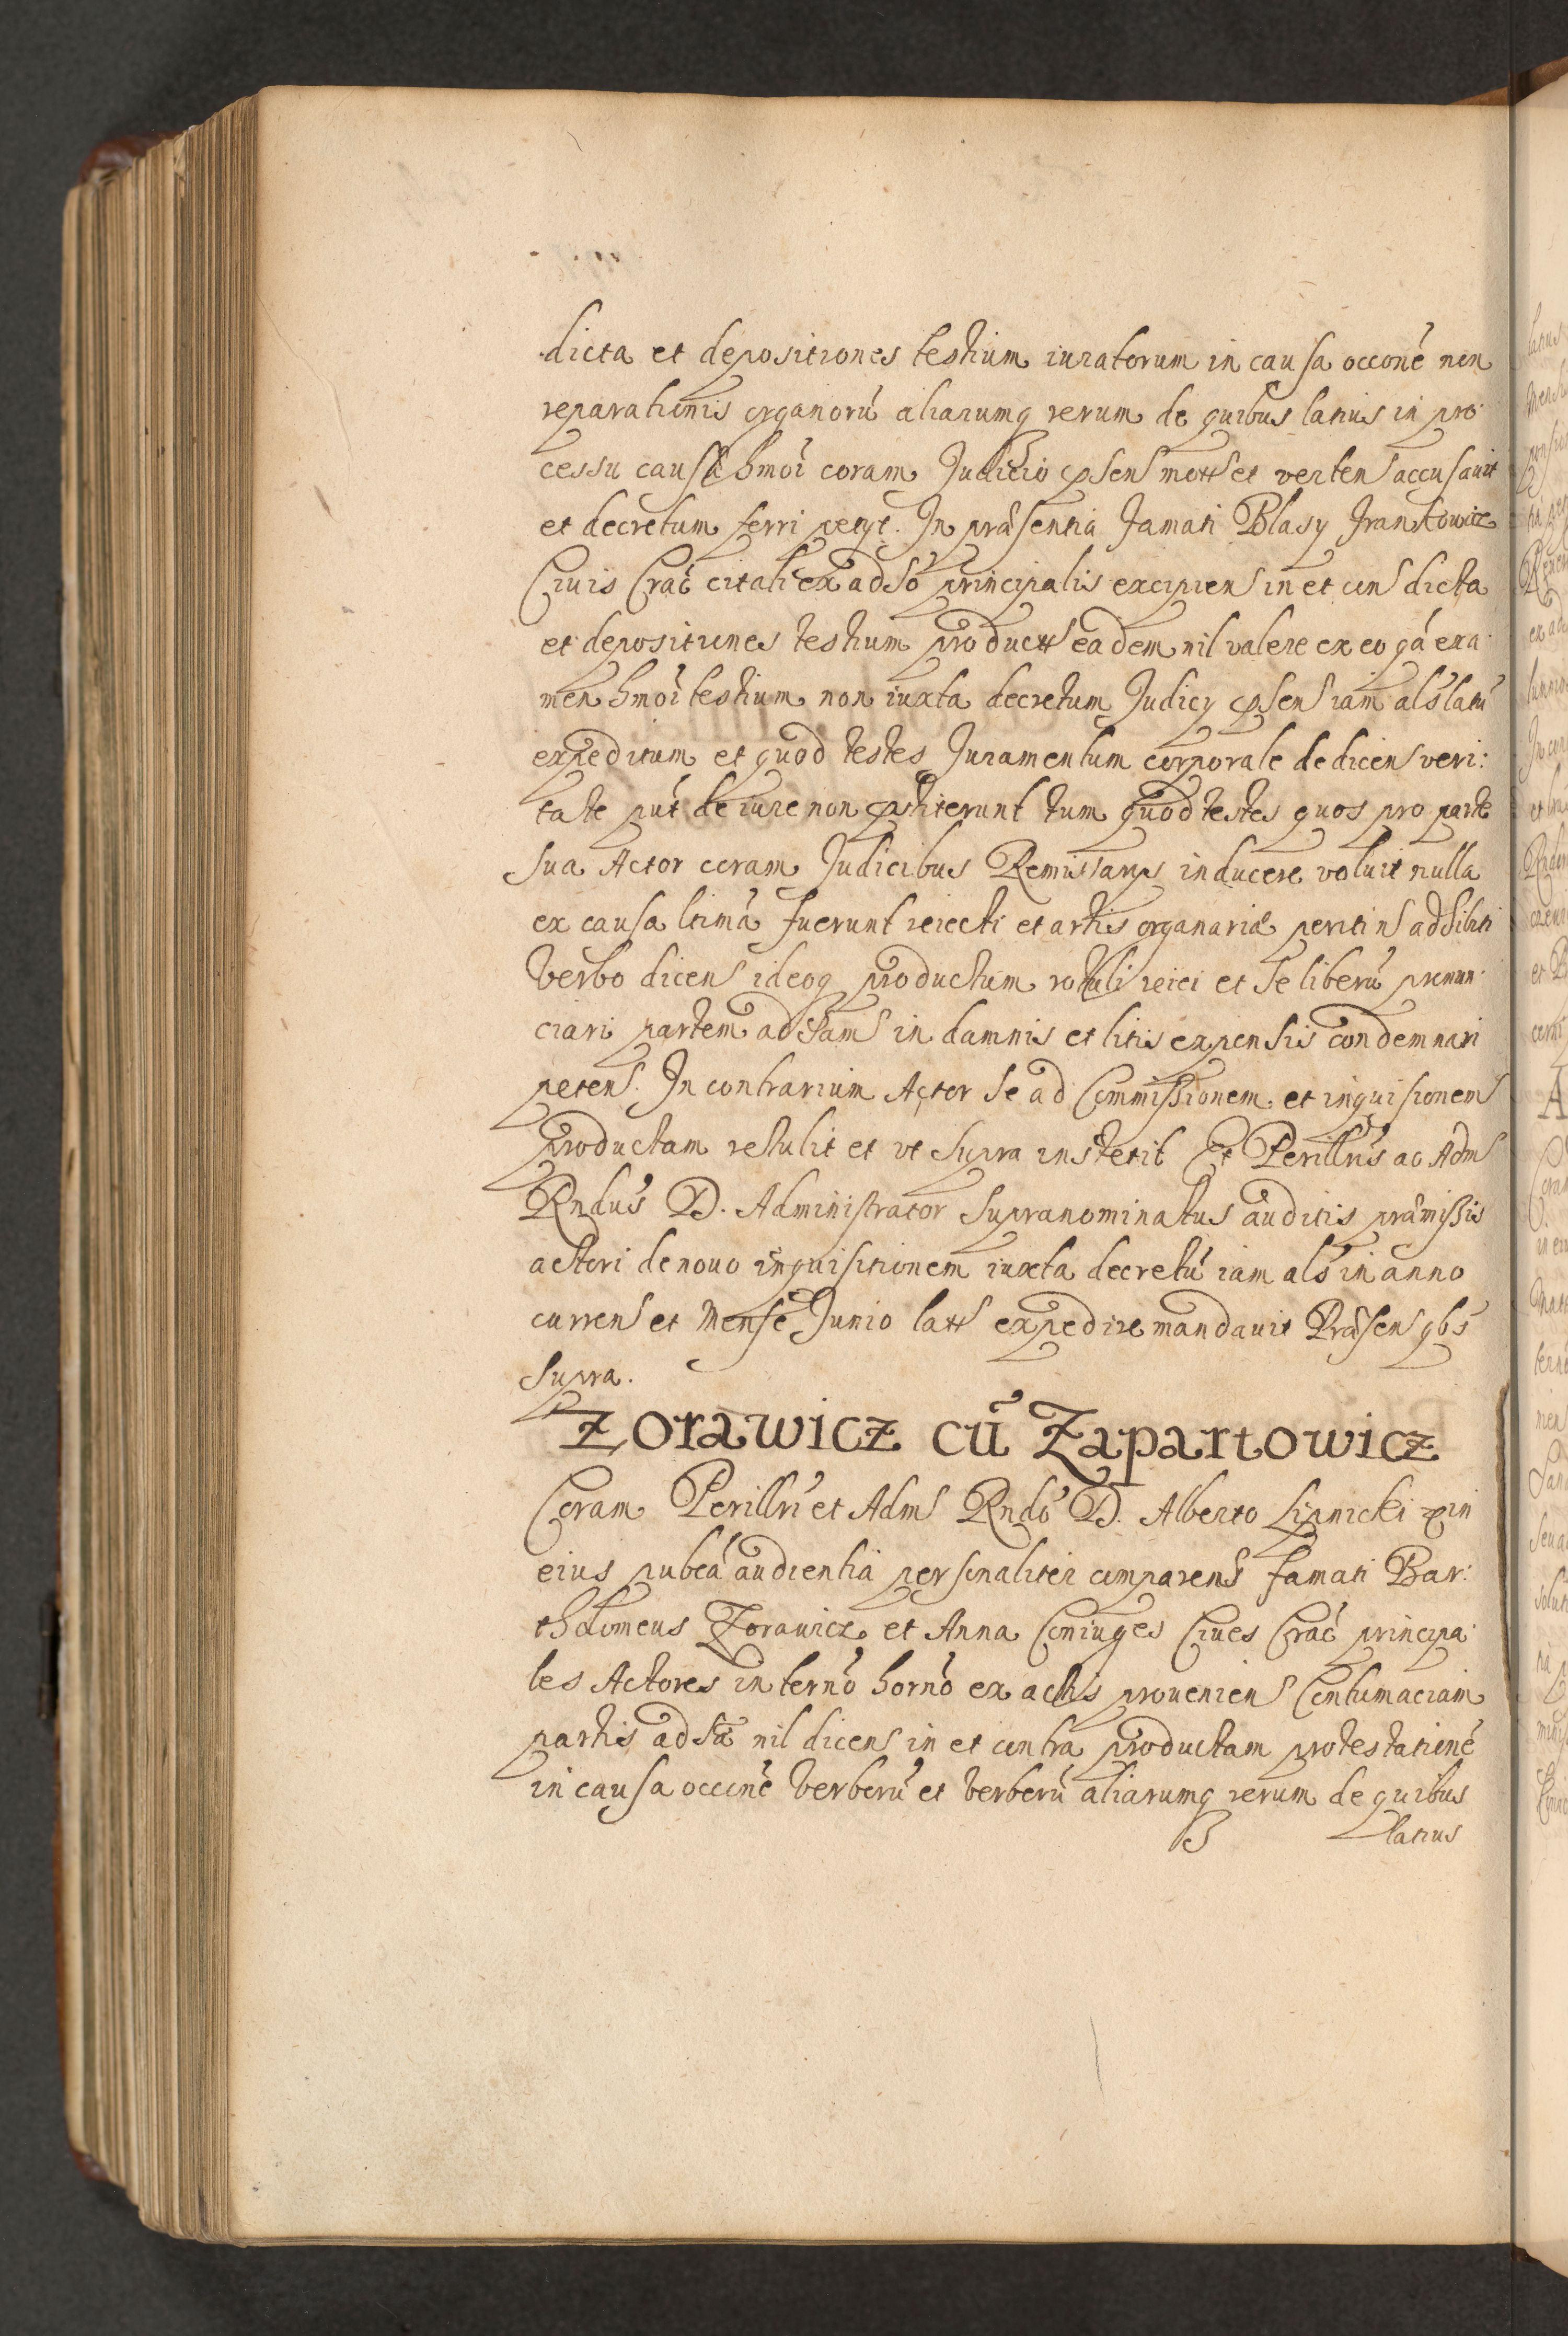 dicta et depositiones testium iuratorum in causa occone non
reparationis organorū aliarumq rerum de quibus latius in pro
cessu causæ hmoi coram Judicio psens mott et vertens accusavit
et decretum ferri petyt. In præsentia Famati Blasy Frankowic
Ciuis Crac citati ex adso principalis excipiens in et con dicta
et depositiones testium product eadem nil valere ex eo qa exa
men hmoi testium non iuxta decretum Judicy psens iam als latu
expeditum et quod testes Juramentum corporale de dicen veri:
tate put de iure non pstiterunt tum quod testes quos pro parte
sua Actor coram Judicibus Remissarys inducere voluit nulla
ex causa ltima fuerunt reiecti et artis organariæ periti ns adhibiti
verbo dicens ideoq productum rotuli reici et se liberū pronun
ciari partem adsam in damnis et litis expensis condemnari
petens. In contrarium Actor se ad Commissionem et inquisionem
productam retulit et vt supra institit Et Perillris ac Adm
Rndus D. Administrator supranominatus auditis præmissis
actori denouo inquisitionem iuxta decretū iam als in anno
curren et Mense Junio latt expedire mandauit Præsen qbs
supra.
Zorawicz cū Zapartowicz
Coram Perillri et Adm Rndo D. Alberto Lipnicki in
eius pubca audientia personaliter comparens famati Bar:
tholomeus Zorawicz et Anna Coniuges Ciues Crac principa
les Actores in termo horno ex actis provenien Contumaciam
partis adsæ nil dicens in et contra productam protestatione
in causa occone verberū et verberū aliarumq rerum de quibus
latius